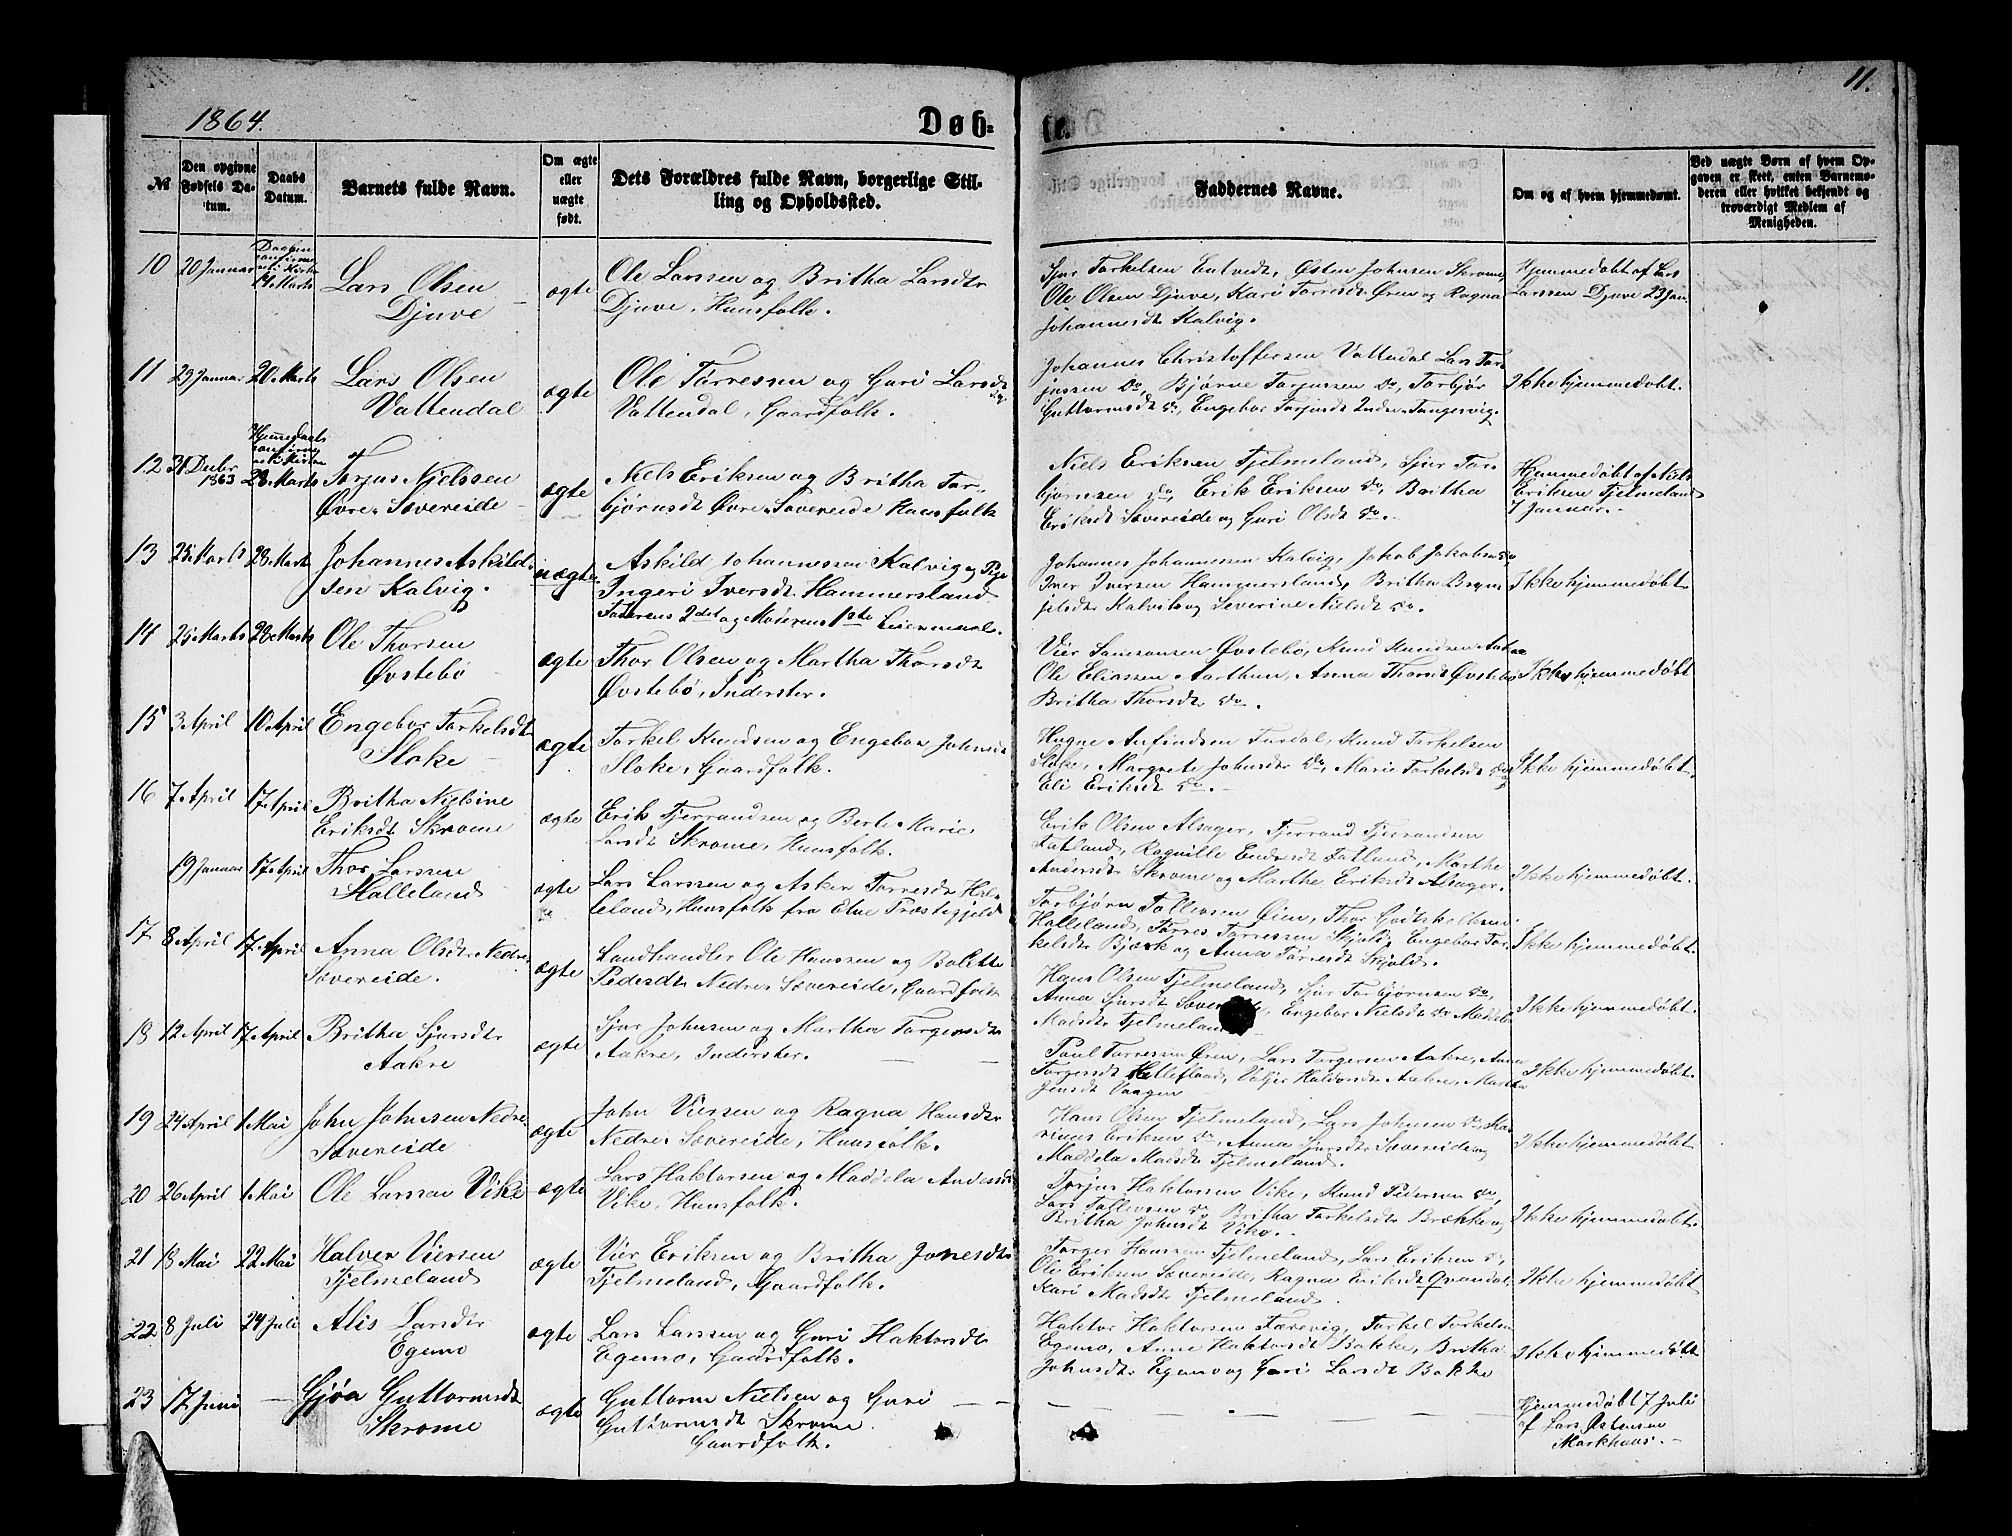 1864.
Døb=
te.
11.
№
Den opgivne Fødsels Da-tum.
Daabs Datum.
Barnets fulde Navn.
Om ægte eller uægte født.
Dets Forældres fulde Navn, borgerlige Stil-
ling og Opholdssted.
Faddernes Navne.
Om og af hvem hjemmedøbt.
Ved uægte Børn af hvem Op-
gaven er skeet, enten Barnemo-
deren eller hvilket bekjendt og
troværdigt Medlem af
Menigheden.
10 20 Januar Daaben i Kirken 19 Marts
Lars Olsen
Djuve
ægte
Ole Larssen og Britha Larsdtr
Djuve, Huusfolk.
Sjur Torkelsen Entvedt, Østen Johnsen Skrome,
Ole Olsen Djuve, Kari Torresdt Øren og Ragna
Johannesdt Kalvig.
Hjemmedøbt af Lars
Larssen Djuve 23 Jan.
11 29 Januar 20 Marts
Lars Olsen
Vattendal
ægte
Ole Tørressen og Guri Larsdt
Vattendal, Gaardfolk.
Johannes Christoffersen Vattedal Lars Tor-
jussen do, Bjørne Torjussen do, Torbjør
Guttormsdt do, Engebor Torjusdt Indre Tungesvig.
Ikke hjemmedøbt.
12 31 Decbr 1863 28 Marts
Torjus Nielssen
Øvre Søvereide
ægte
Niels Eriksen og Britha Tor-
bjørnsdt Øvre Søvereide Huusfolk
Niels Eriksen Fjelmeland, Sjur Tor-
bjørnsen do, Erik Eriksen do, Britha
Eriksdt Søvereide og Guri Olsdt do.
Hjemmedøbt af Niels
Eriksen Fjelmeland
7 Januar.
13 25 Marts 28 Marts
Johannes Askild-
sen Kalvig.
uægte
Askild Johannessen Kalvig og Pige
Ingeri Iversdt Hammersland
Faderens 2det og Moderens 1ste Leiermaal.
Johannes Johannessen Kalvig, Jakob Jakobsen do
Iver Iversen Hammersland, Britha Bryn-
jelsdtr Kalvik og Severine Nielsdt do.
Ikke hjemmedøbt
14 25 Marts 28 Marts
Ole Thorsen
Østebø
ægte
Thor Olsen og Martha Thorsdt
Øvstebø, Inderster.
Vier Samsonsen Øvstebø, Knud Knudsen
Ole Eliassen Aarthun, Anna Thorsdt Øvstebø
Britha Thorsdt do.
Ikke hjemmedøbt
15 3 April 10 April
Engebor Torkelsdt
Sloke
ægte
Torkel Knudsen og Engebor Johnsdt
Sloke, Gaardfolk.
Hagne Anfindsen Furdal, Knud Torkelsen
Sloke, Margrete Johnsdtr do, Marie Torkelsdt do
Eli Eriksdt do.
Ikke hjemmedøbt.
16 7 April 17 April
Britha Nielsine
Eriksdt Skrome
ægte
Erik Fjerrandsen og Berte Marie
Larsdt Skrome, Huusfolk.
Erik Olsen Alsager, Fjerrand Fjerrandsen
Fatland, Ragnille Endresdt Fatland, Marthe
Andersdtr Skrome og Marthe Eriksdt Alsager.
Ikke hjemmedøbt.
19 Januar 17 April
Thor Larssen
Halleland
ægte
Lars Larssen og Torresdt Hal-
leland, Huusfolk fra Etne Præstegjeld
Torbjørn Tollevsen Øien, Thor
Halleland, Torres Torressen Skjold, Engebor Tor-
kelsdtr Bjærk og Anna Tørresdt Skjold.
Ikke hjemmedøbt.
17 8 April 17 April
Anna Olsdtr Nedre
Søvereide.
ægte
Landhandler Ole Hanssen og Bolette
Pedersdt Nedre Søvereide, Gaardfolk
Hans Olsen Fjelmeland, Sjur Torbjørnsen do,
Anna Sjursdt Engebor Nielsdt do
Madsdtr Fjelmeland
Ikke hjemmedøbt.
18 12 April 17 April
Britha Sjursdtr
Aakre
ægte
Sjur Johnsen og Martha Torgersdtr
Aakre, Inderster.
Poul Torressen Øren, Lars Torgersen Aakre, Anna
Torgersdt Valjer Haldorsdt Aakre, Martha
Jensdt Vaagen
Ikke hjemmedøbt.
19 24 April 1 Mai
John Johnsen Nedre
Søvereide
ægte
John Viersen og Ragna Hansdtr
Nedre Søvereide, Huusfolk.
Hans Olsen Fjelmeland, Lars Johnsen do, Ma-
rinus Eriksen do, Anna Sjursdt Søvereide og
Maddela Madsdt Fjelmeland.
Ikke hjemmedøbt
20 26 April 1 Mai
Ole Larsen Vike
ægte
Lars Haktorsen og Maddela Andersdt
Vike, Huusfolk.
Torjus Haktorsen Vike, Knud Pedersen do,
Lars Tollevsen do Britha Torkelsdtr Brække og
Britha Johnsdt Vike.
Ikke hjemmedøbt.
21 18 Mai 22 Mai
Halver Viersen
Fjelmeland
ægte
Vier Eriksen og Britha Jonesdtr
Fjelmeland, Gaardfolk.
Torger Hanssen Fjelmeland, Lars Eriksen do,
Ole Eriksen Søvereide, Ragna Eriksdt Qvandal
Kari Madsdt Fjelmeland.
Ikke hjemmedøbt
22 8 Juli 24 Juli
Alis Larsdtr
Egemo
ægte
Lars Larssen og Guri Haktorsdtr
Egemo, Gaardfolk.
Haktor Haktorsen Farevig, Torkel Torkelsen
Egemo, Anne Haktorsdt Bakke, Britha
Johnsdtr Egemo og Guri Larsdt Bakke
Ikke hjemmedøbt
23 17 Juni —
Gjøa Guttormsdt
Skrome
ægte
Guttorm Nielsen og Guri
Guttormsdt Skrome
Gaardfolk.
Hjemmedøbt 7 Juli
af Lars Østensen
Markhuus.